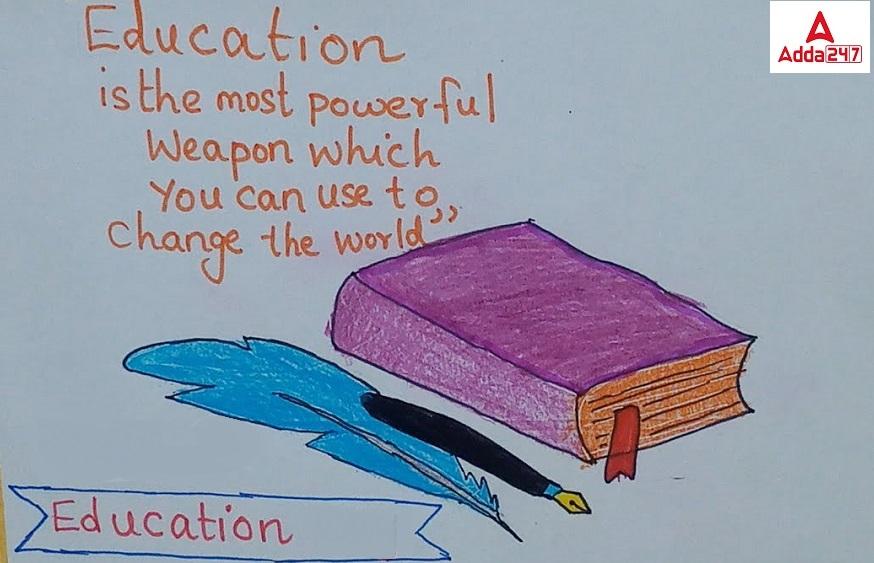 Education
is the most powerful
Weapon which
You can use to
Change the world”
Education
Adda247